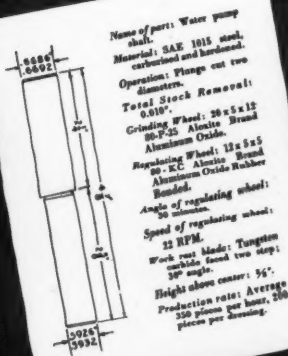 .5686
.6692
Name of part: Water pump
shaft.
Material: SAE 1015 steel,
carburized and hardened.
Operation: Plunge cut two
diameters.
Total Stock Removal:
0.010".
Grinding Wheel: 20 x 5 x 12
80-P-25 Aloxite Brand
Aluminum Oxide.
Regulating Wheel: 12 x 5 x 5
80-KC Aloxite Brand
Aluminum Oxide Rubber
Bonded.
Angle of regulating wheel:
30 minutes.
Speed of regulating wheel:
22 RPM.
Work rest blade: Tungsten
carbide faced two step;
30° angle.
Height above center:
Production rate: Average
350 pieces per hour, 200
pieces per dressing.
.5926
.5932